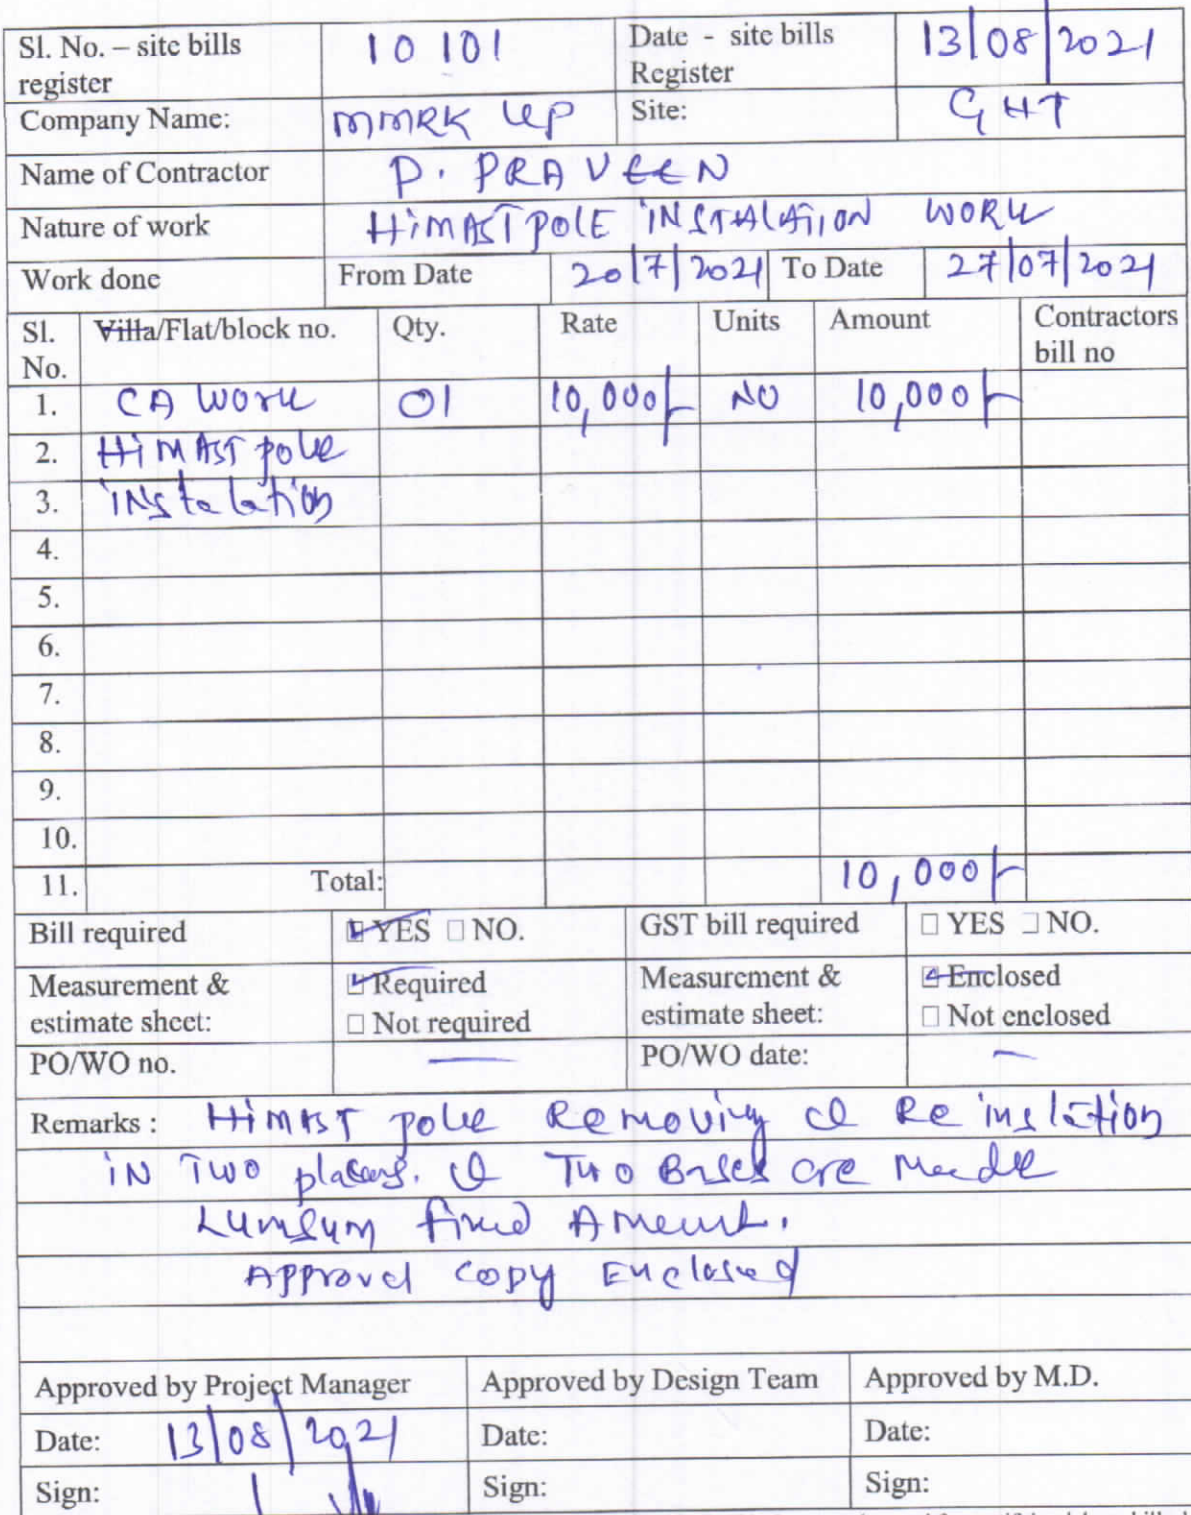 Sl. No. – site bills register 10 101 Date - site bills Register 13/08/2021
Company Name: MMRK LLP Site: GHT
Name of Contractor P. PRAVEEN
Nature of work HiMAST POLE iNSTALATiON WORK
Work done From Date 20/7/2021 To Date 27/07/2021
Sl. No. Villa/Flat/block no. Qty. Rate Units Amount Contractors bill no
1. CA WORK 01 10,000/- NO 10,000/-
2. HiMAST pole
3. iNstalation
4.
5.
6.
7.
8.
9.
10.
11. Total: 10,000/-
Bill required ☑ YES ☐ NO. GST bill required ☐ YES ☐ NO.
Measurement & estimate sheet: ☑ Required ☐ Not required Measurement & estimate sheet: ☑ Enclosed ☐ Not enclosed
PO/WO no. — PO/WO date: —
Remarks : HiMAST pole Removing & Re inslation
iN Two places. & Two Bases are Made
Lumsum fixed Amount.
Approvel copy Enclosed
Approved by Project Manager Approved by Design Team Approved by M.D.
Date: 13/08/2021 Date: Date:
Sign: Sign: Sign: